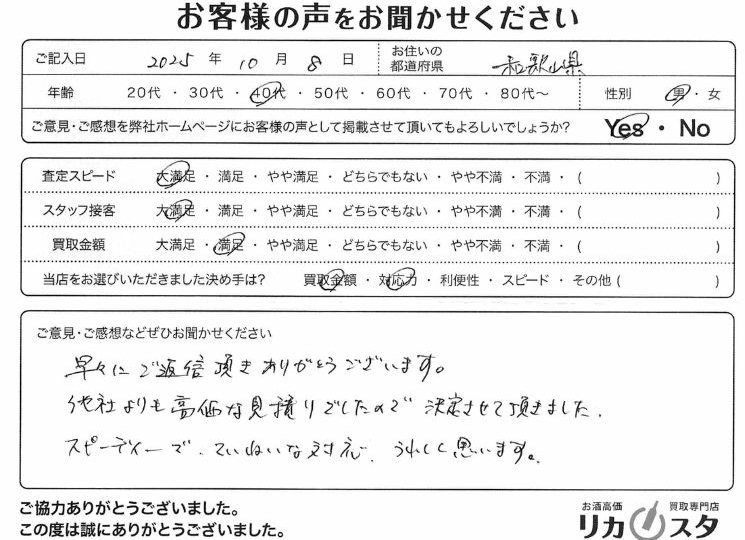 お客様の声をお聞かせください
ご記入日 2025 年 10 月 8 日 お住いの都道府県 和歌山県
年齢 20代 ・ 30代 ・ 40代 ・ 50代 ・ 60代 ・ 70代 ・ 80代〜 性別 男 ・ 女
ご意見・ご感想を弊社ホームページにお客様の声として掲載させて頂いてもよろしいでしょうか? Yes ・ No
査定スピード 大満足 ・ 満足 ・ やや満足 ・ どちらでもない ・ やや不満 ・ 不満 ・ ( )
スタッフ接客 大満足 ・ 満足 ・ やや満足 ・ どちらでもない ・ やや不満 ・ 不満 ・ ( )
買取金額 大満足 ・ 満足 ・ やや満足 ・ どちらでもない ・ やや不満 ・ 不満 ・ ( )
当店をお選びいただきました決め手は? 買取金額 ・ 対応力 ・ 利便性 ・ スピード ・ その他 ( )
ご意見・ご感想などぜひお聞かせください
早々にご返信頂きありがとうございます。
他社よりも高価な見積りでしたので決定させて頂きました.
スピーディーで、ていねいな対応、うれしく思います。
ご協力ありがとうございました。
この度は誠にありがとうございました。
お酒高価 買取専門店
リカスタ